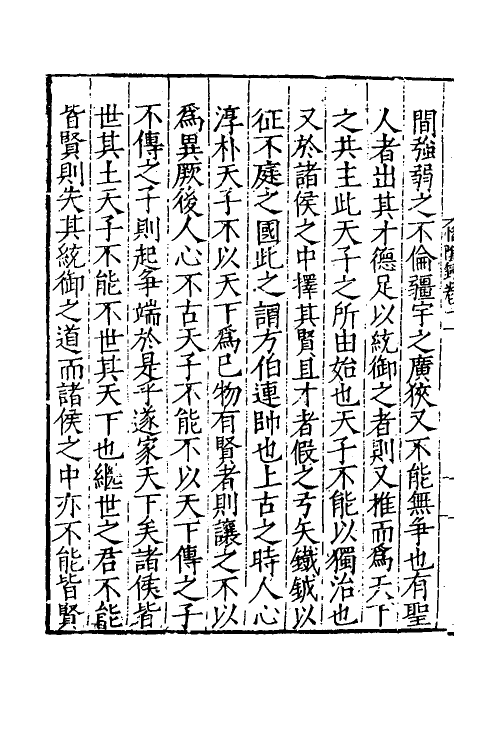 間強弱之不倫疆宇之廣狹又不能無爭也有聖
人者出其才德足以統御之者則又推而爲天下
之共主此天子之所由始也天子不能以獨治也
又於諸侯之中擇其賢且才者假之弓矢鐵鉞以
征不庭之國此之謂方伯連帥也上古之時人心
淳朴天子不以天下爲已物有賢者則讓之不以
爲異厥後人心不古天子不能不以天下傳之子
不傳之子則起爭端於是乎遂家天下矣諸侯皆
世其土天子不能不世其天下也繼世之君不能
皆賢則失其統御之道而諸侯之中亦不能皆賢